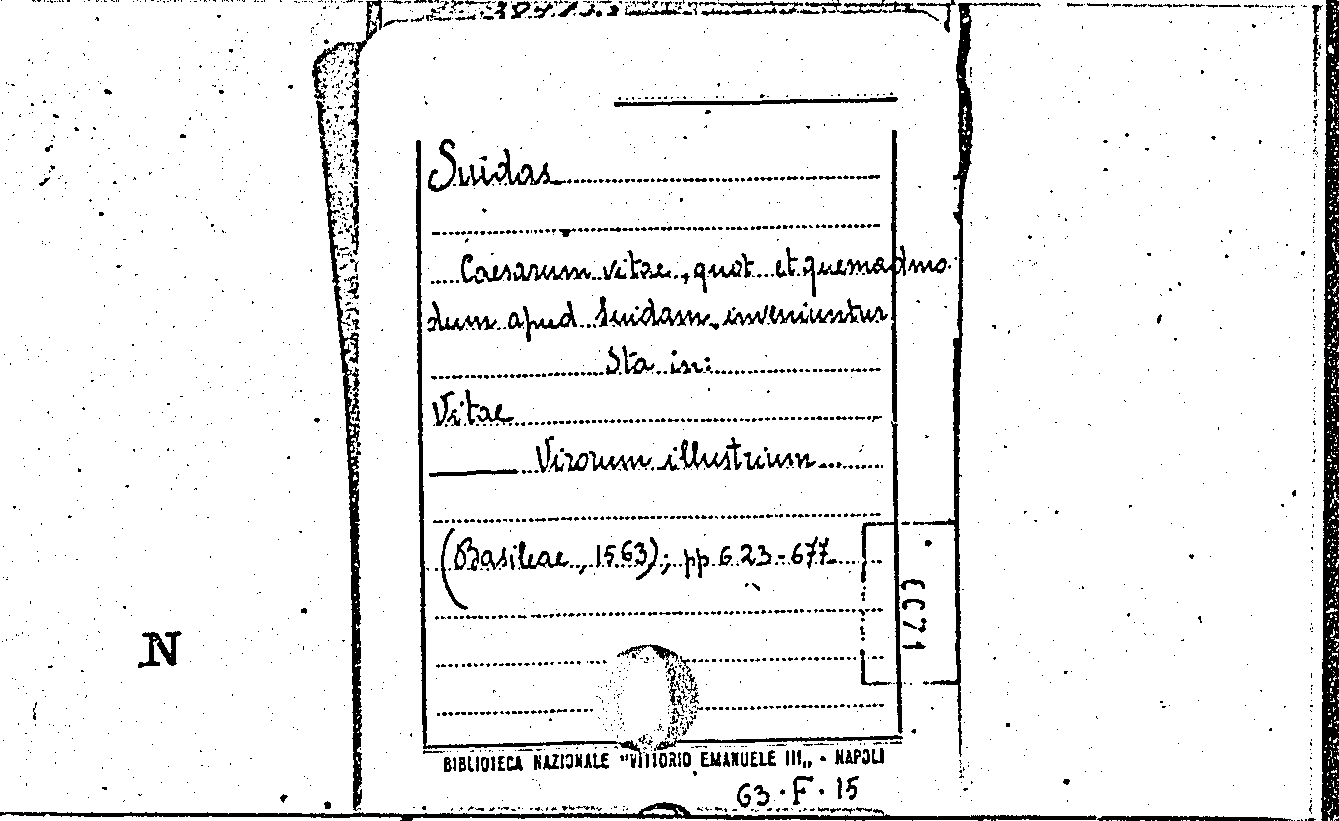 Suidas
Caesarum vitae, quot et quemadmo-
dum apud Suidam inveniuntur
Sta in:
Vitae
Virorum illustrium
(Basileae, 1563); pp 623-677
CC71
N
BIBLIOTECA NAZIONALE "VITTORIO EMANUELE III„ - NAPOLI
63·F·15